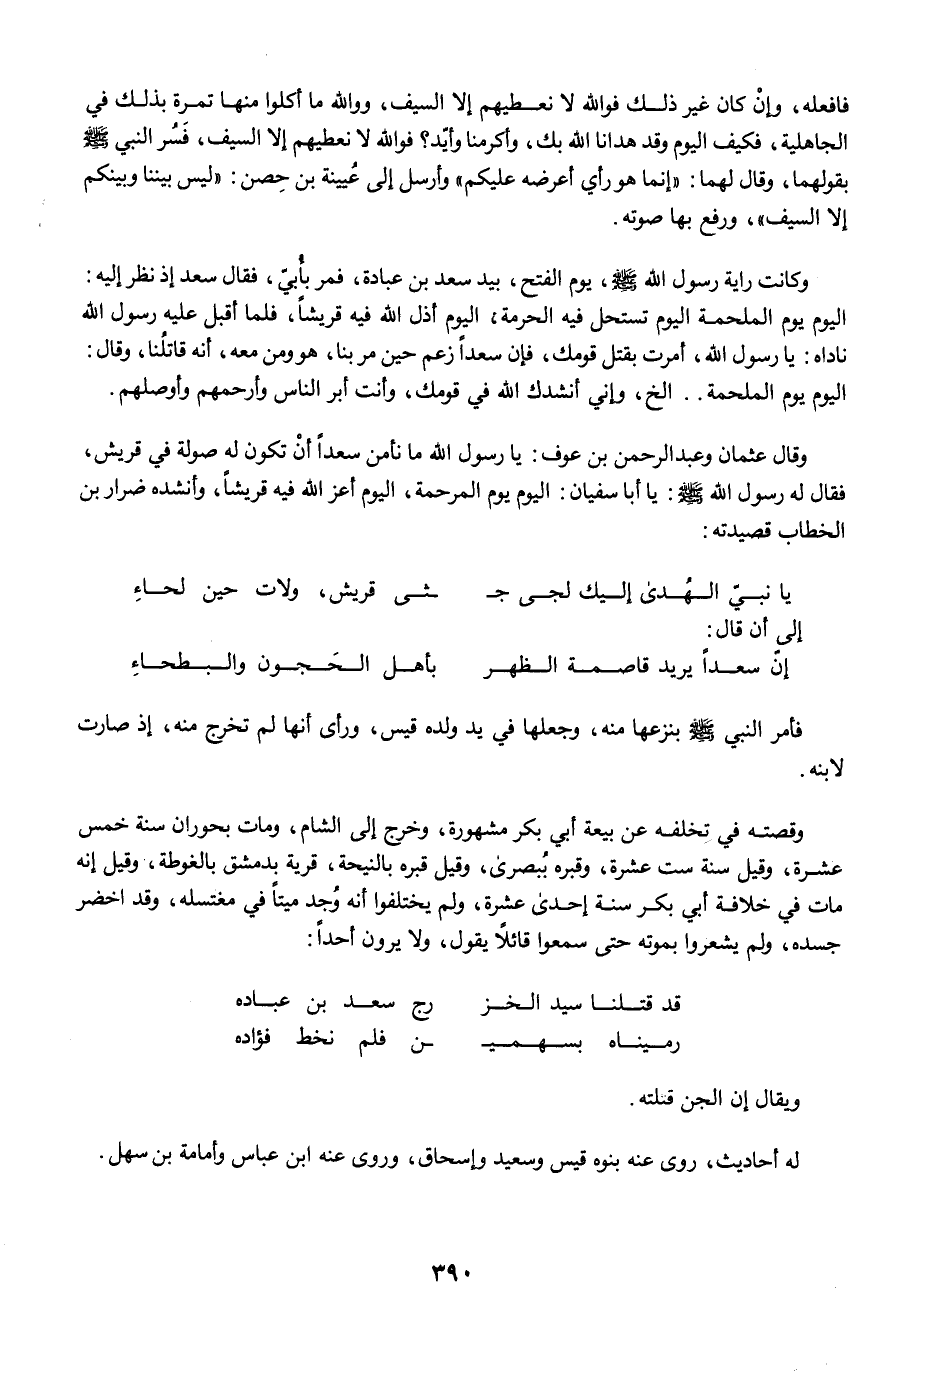 فافعله، وإنْ كان غير ذلـك فوالله لا نعـطيهم إلا السيف، ووالله ما أكلوا منهـا تمـرة بذلـك في
الجاهلية، فكيف اليوم وقد هدانا الله بك، وأكرمنا وأيّد؟ فوالله لا نعطيهم إلا السيف، فَسُر النبي ﷺ
بقولهما، وقال لهما: «إنما هو رأي أعرضه عليكم» وأرسل إلى عُيينة بن حِصن: «ليس بيننا وبينكم
إلا السيف»، ورفع بها صوته.
وكانت راية رسول الله ﷺ، يوم الفتح، بيد سعد بن عبادة، فمر بأُبيّ، فقال سعد إذ نظر إليه:
اليوم يوم الملحمـة اليوم تستحل فيه الحرمة؛ اليوم أذل الله فيه قريشاً، فلما أقبل عليه رسول الله
ناداه: يا رسول الله، أمرت بقتل قومك، فإن سعداً زعم حين مر بنا، هو ومن معه، أنه قاتلُنا، وقال:
اليوم يوم الملحمة.. الخ، وإني أنشدك الله في قومك، وأنت أبر الناس وأرحمهم وأوصلهم.
وقال عثمان وعبدالرحمن بن عوف: يا رسول الله ما نأمن سعداً أنْ تكون له صولة في قريش،
فقال له رسول الله ﷺ: يا أبا سفيان: اليوم يوم المرحمة، اليوم أعز الله فيه قريشاً، وأنشده ضرار بن
الخطاب قصيدته:
يا نبـيّ الـهُـدىٰ إلـيك لجـى جـ ـثـى قريش، ولات حين لحـاءِ
إلى أن قال:
إنّ سعـداً يريد قاصـمـة الـظهـر بأهـل الـحَـجـون والـبـطحـاءِ
فأمر النبي ﷺ بنزعها منه، وجعلها في يد ولده قيس، ورأى أنها لم تخرج منه، إذ صارت
لابنه.
وقصتـه في تخلفـه عن بيعة أبي بكر مشهورة، وخرج إلى الشام، ومات بحوران سنة خمس
عشـرة، وقيل سنة ست عشرة، وقبره ببُصرىٰ، وقيل قبره بالنيحة، قرية بدمشق بالغوطة، وقيل إنه
مات في خلافـة أبي بكـر سنـة إحدىٰ عشرة، ولم يختلفوا أنه وُجد ميتاً في مغتسله، وقد اخضر
جسده، ولم يشعروا بموته حتى سمعوا قائلاً يقول، ولا يرون أحداً:
قد قتـلنـا سيد الـخـز رج سعـد بن عبـاده
رمـينـاه بسـهـميـ ـن فلم نخط فؤاده
ويقال إن الجن قتلته.
له أحاديث، روى عنه بنوه قيس وسعيد وإسحاق، وروى عنه ابن عباس وأمامة بن سهل.
٣٩٠